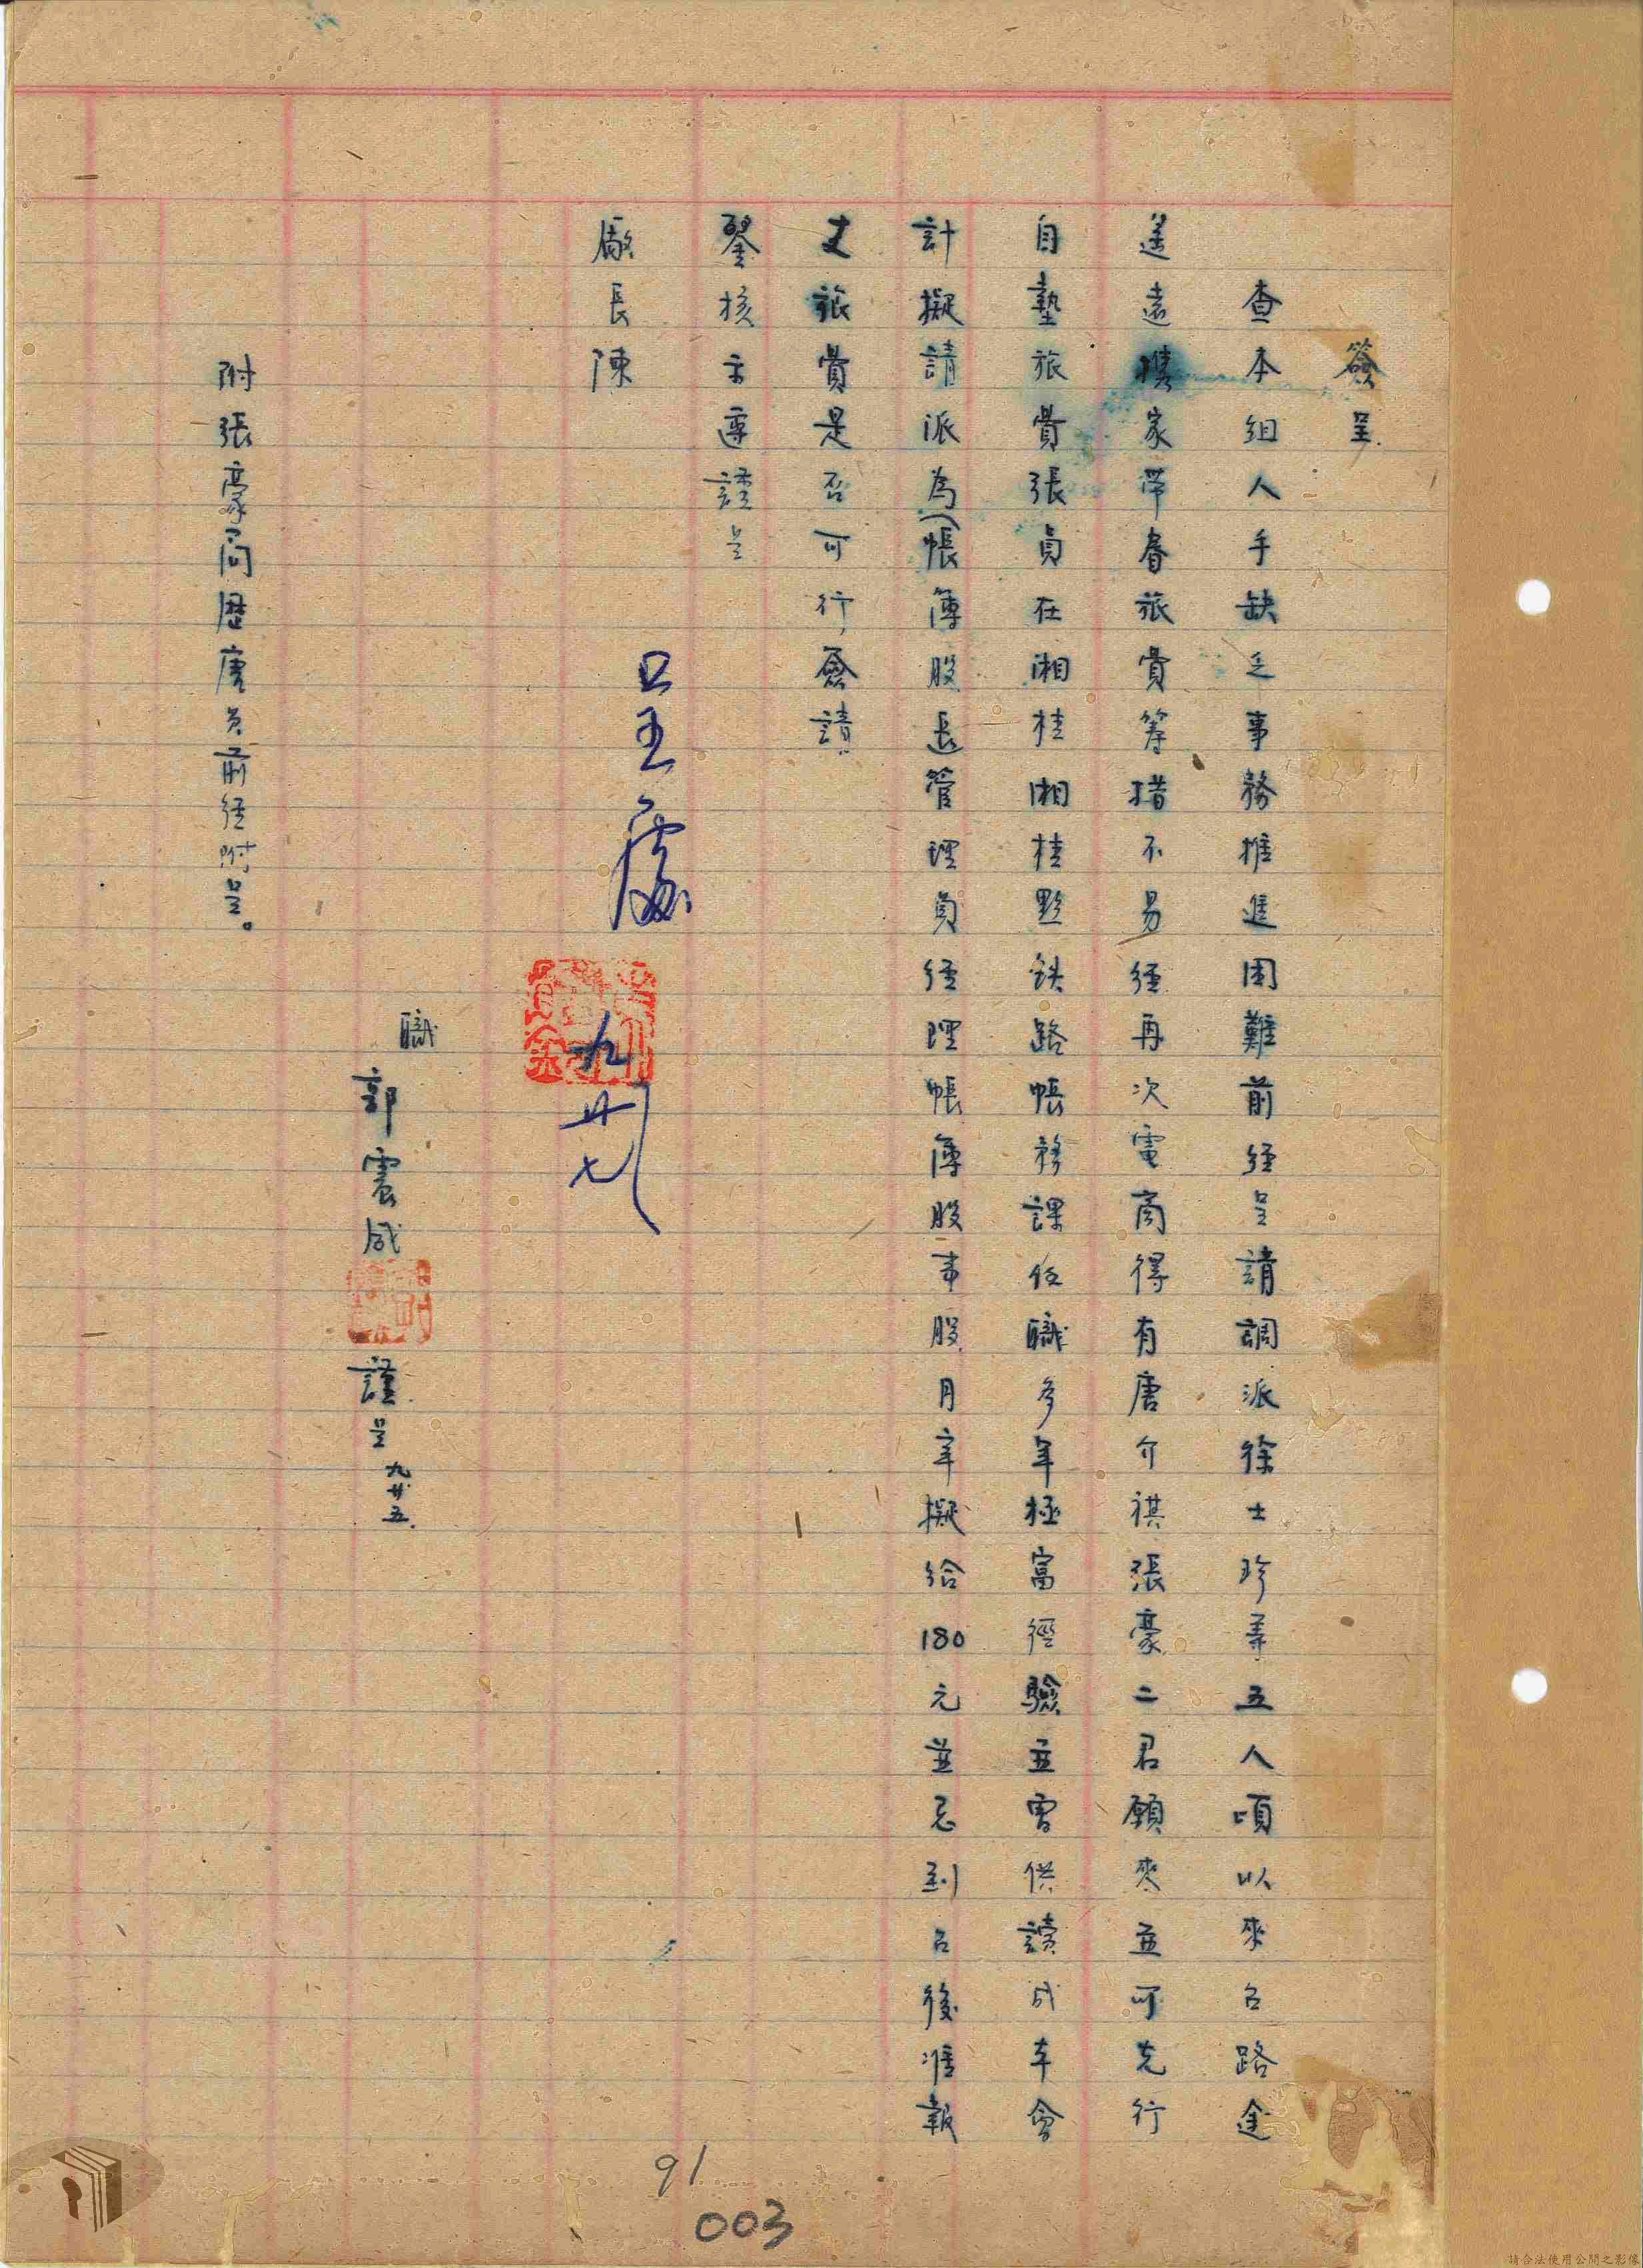 簽呈
查本組人手缺乏事務推進困難前經呈請調派徐士珍等五人頃以來呂路途
遙遠携家帶眷旅費籌措不易經再次電商得有唐介祺張豪二君願來並可先行
自墊旅費張員在湘桂湘桂黔鉄路帳務課任職多年極富經驗並曾供讀成本會
計擬請派為(帳簿股)長管理員經理帳簿股事股月辛擬給180元並忌到呂後准報
支旅費是否可行簽請
鑒核示遵謹呈
廠長陳
呈王處
九廿七
職
郭震成
謹呈 九廿五
附張豪簡歷唐員前經附呈。
91
003
請合法使用公開之影像